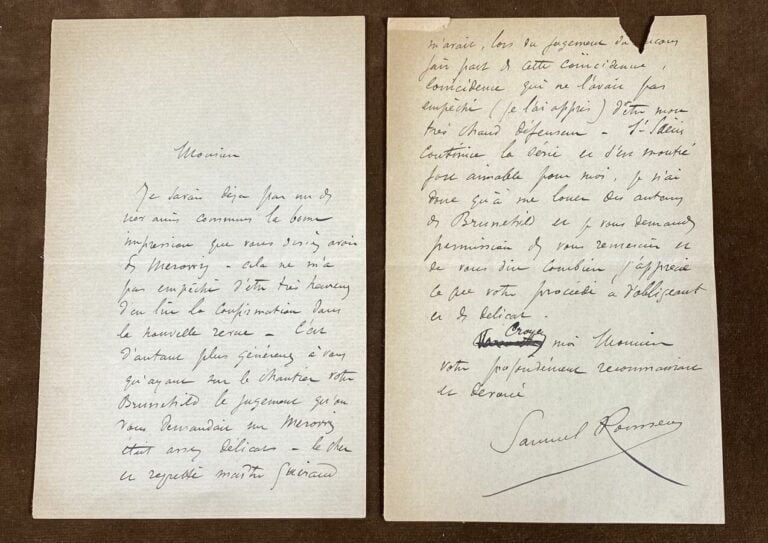 Monsieur
Je savais déja par un de
nos amis communs la bonne
impression que vous disiez avoir
de Merowig - cela ne m'a
pas empêché d'être très heureux
d'en lire la confirmation dans
la nouvelle revue - C'est
d'autant plus généreux à vous
qu'ayant sur le chantier votre
Brunehild le jugement qu'on
vous demandait sur Merowig
était assez délicat - le cher
et regretté maître Guiraud
m'avait, lors du jugement du concours
fait part de cette coïncidence,
Coïncidence qui ne l'avait pas
empêché (je l'ai appris) d'être mon
très chaud défenseur - St Saëns
continue la série et s'est montré
fort aimable pour moi, je n'ai
donc qu'à me louer des auteurs
de Brunehild et je vous demande
permission de vous remercier et
de vous dire combien j'apprécie
ce que votre procédé a d'obligeant
et de délicat.
Croyez
moi Monsieur
votre profondément reconnaissant
et dévoué
Samuel Rousseau